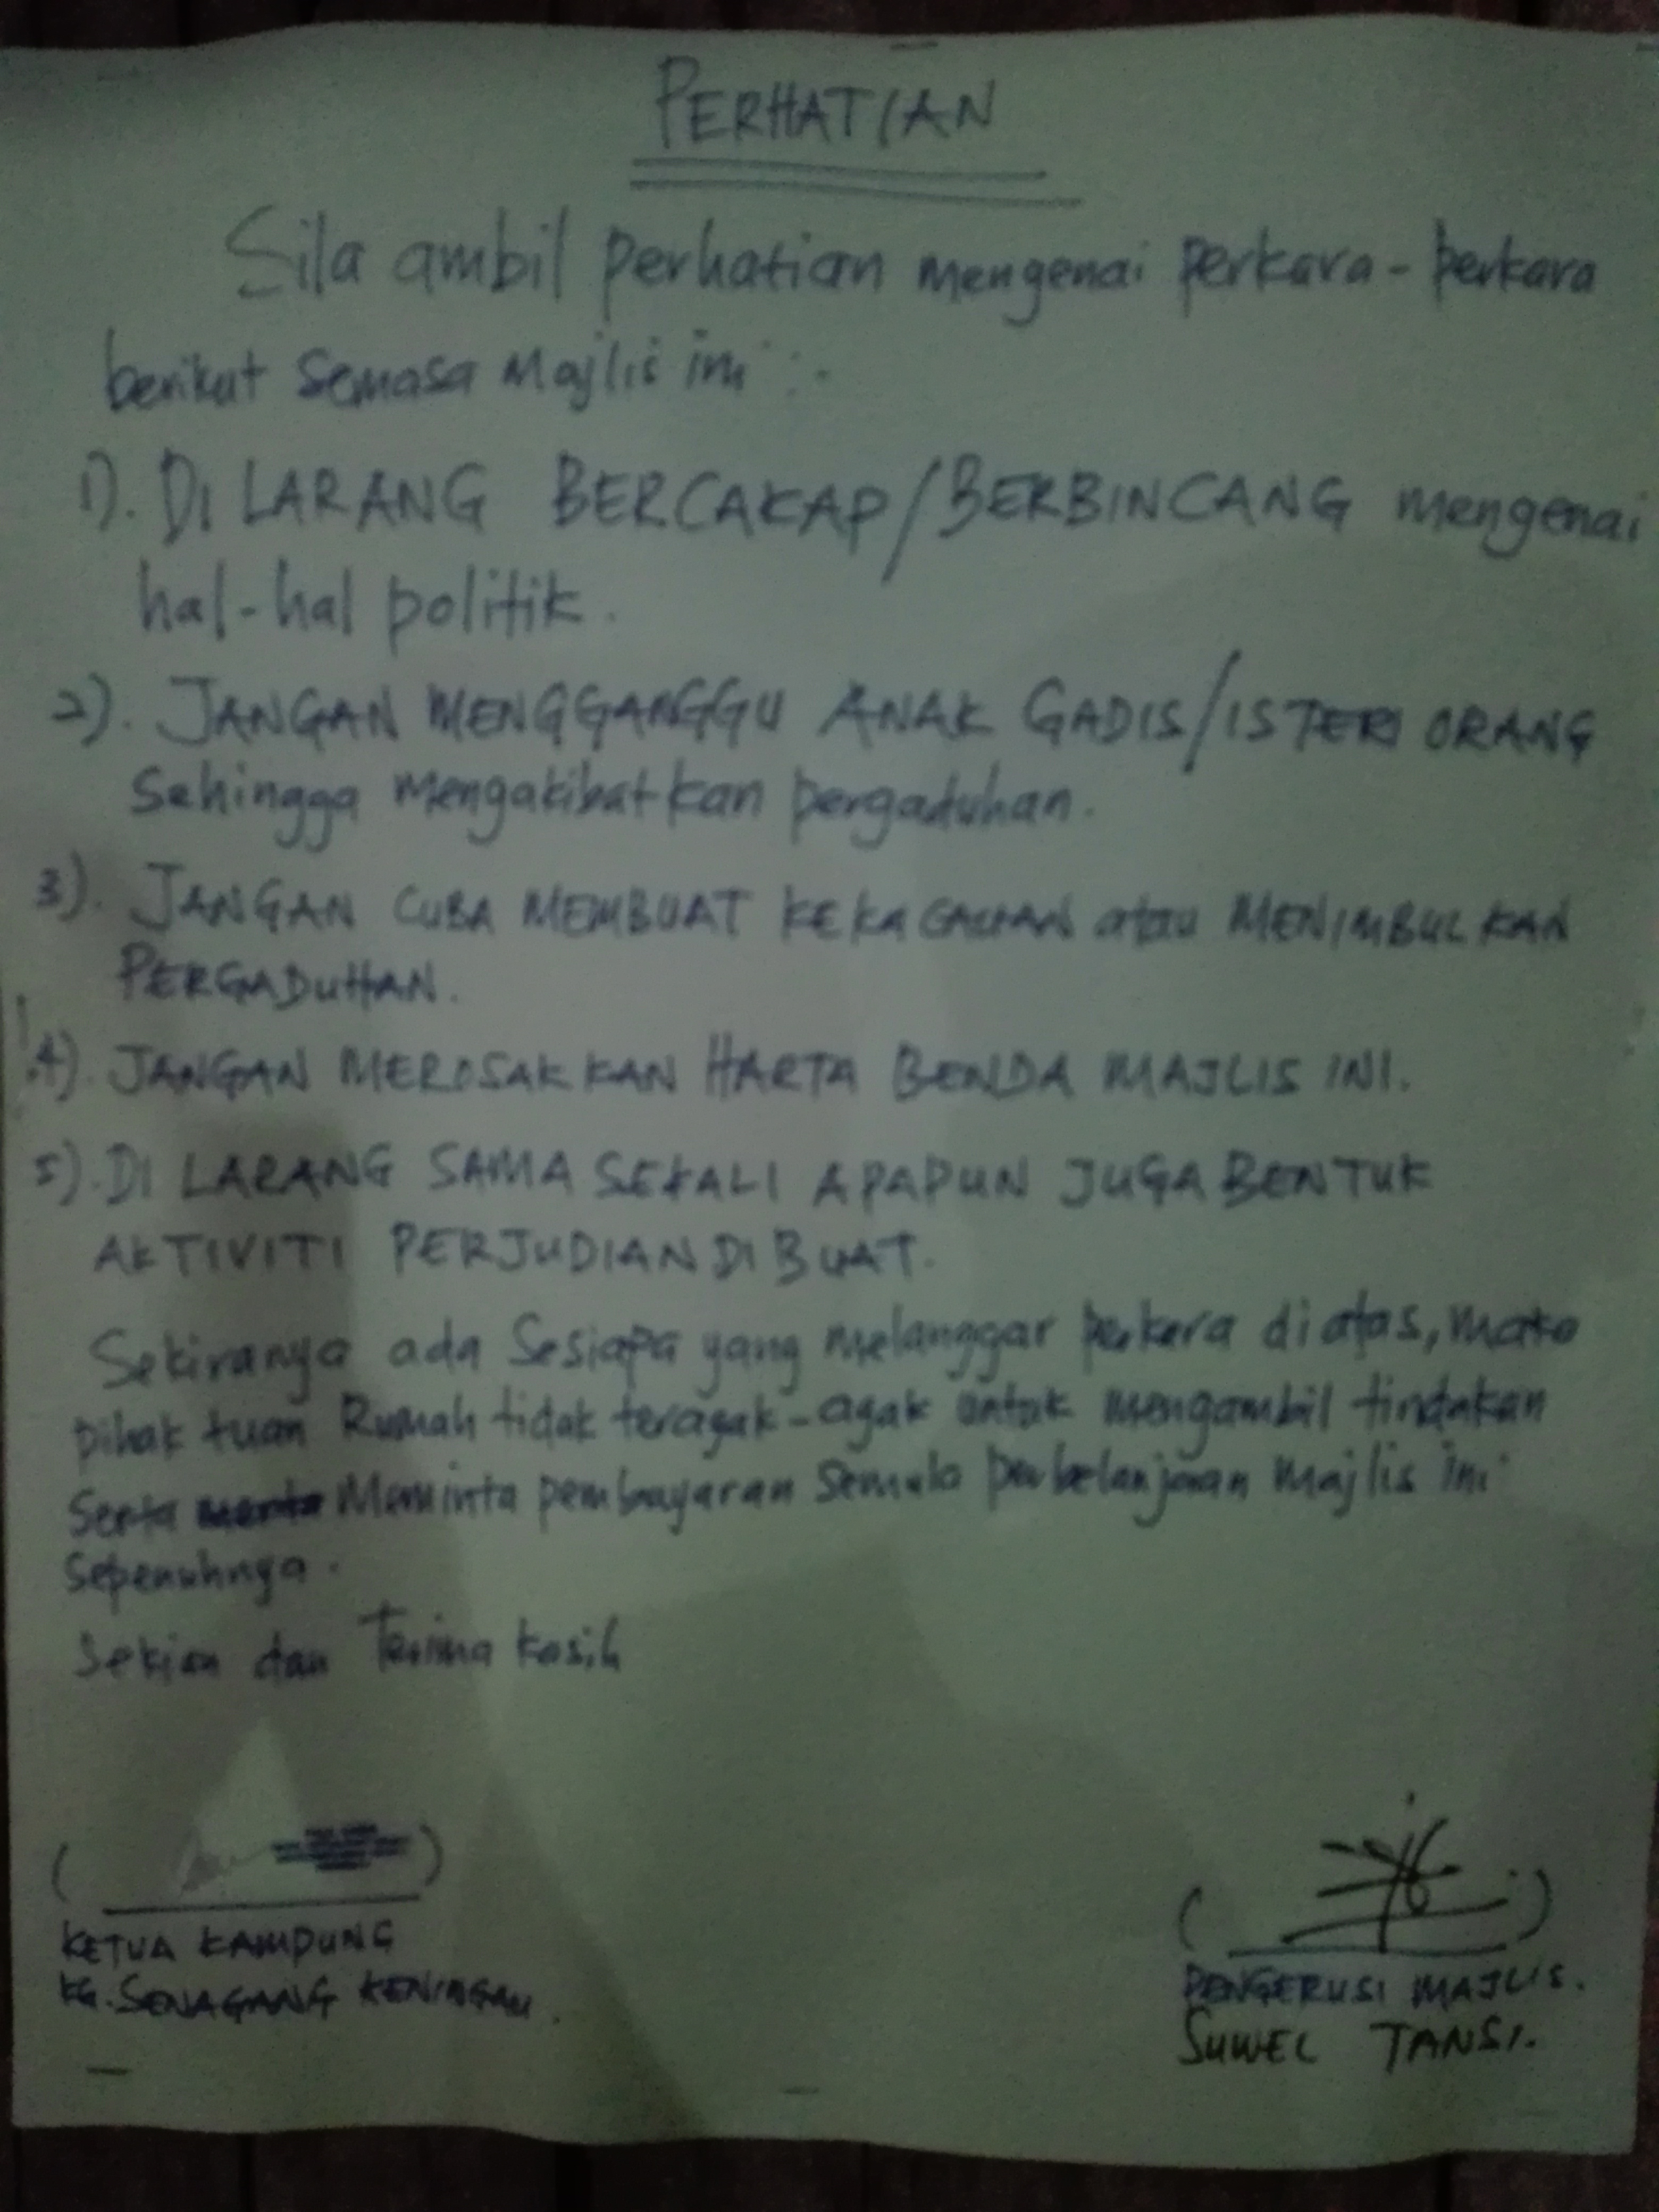 PERHATIAN
Sila ambil perhatian mengenai perkara-perkara
berikut semasa Majlis ini :-
1). DI LARANG BERCAKAP/BERBINCANG mengenai
hal-hal politik.
2). JANGAN MENGGANGGU ANAK GADIS/ISTERI ORANG
sehingga mengakibatkan pergaduhan.
3). JANGAN CUBA MEMBUAT KEKACAUAN atau MENIMBULKAN
PERGADUHAN.
4). JANGAN MEROSAKKAN HARTA BENDA MAJLIS INI.
5). DI LARANG SAMA SEKALI APAPUN JUGA BENTUK
AKTIVITI PERJUDIAN DI BUAT.
Sekiranya ada Sesiapa yang melanggar perkara di atas, maka
pihak tuan Rumah tidak teragak-agak untuk mengambil tindakan
serta Meminta pembayaran semula perbelanjaan majlis ini
sepenuhnya.
Sekian dan Terima kasih
KETUA KAMPUNG
KG. SENAGANG KENINGAU.
PENGERUSI MAJLIS.
SUWEL TANSI.